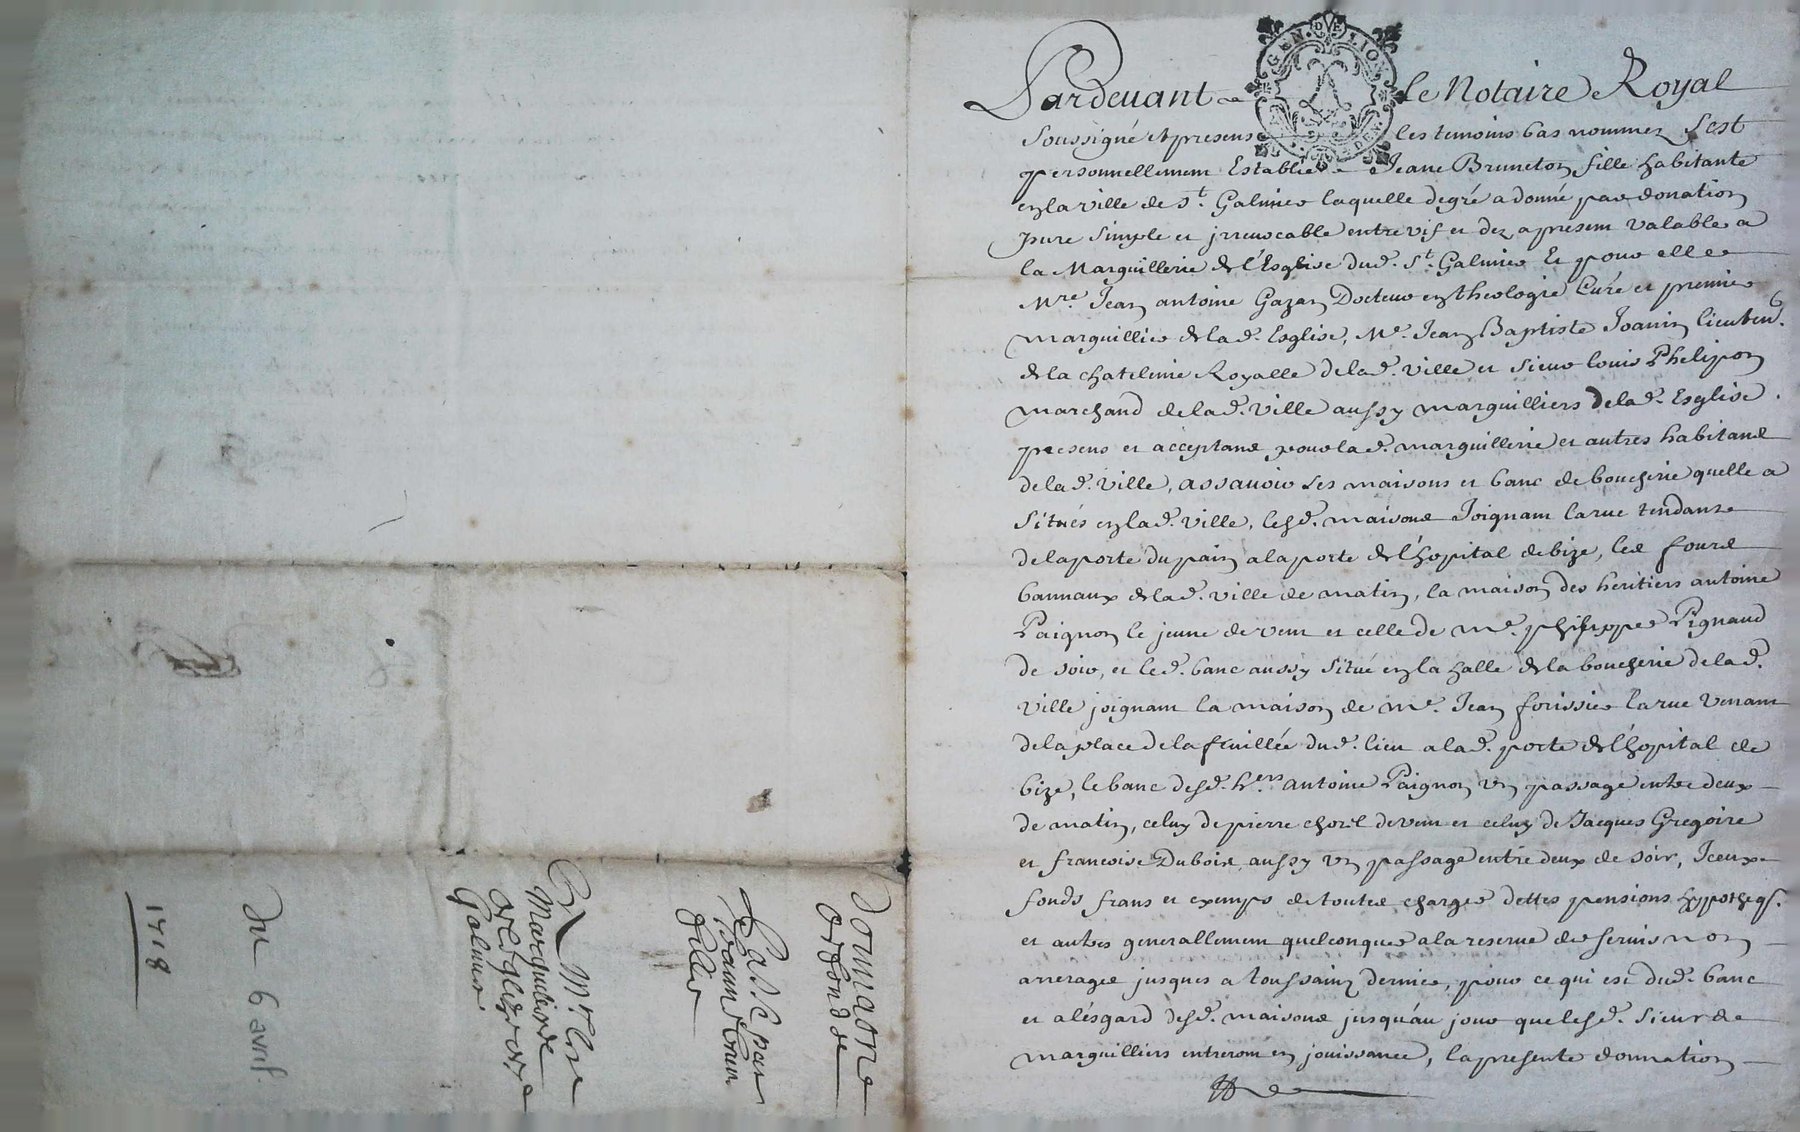 Pardevant le Notaire Royal
Soussigné et presens les temoins bas nommez s'est
personnellement Establie Jeane Bruneton fille habitante
en la ville de St. Galmier laquelle de gré a donné par donation
pure simple et jrrevocable entre vif et dez a present valable a
la Marguillerie de l'Esglise dud. St. Galmier Et pour elle
Mre. Jean antoine Gazan Docteur en theologie Curé et premier
marguillier de lad. Esglise, Me. Jean Baptiste Joanin lieuten.
de la chatelenie Royalle de lad. ville et sieur louis Phelipon
marchand de lad. ville aussy marguilliers de lad. Esglise
presens et acceptans pour lad. marguillerie et autres habitans
de lad. ville, assavoir ses maisons et banc de boucherie quelle a
situés en lad. ville, lesd. maisons Joignant la rue tendante
de la porte du pain a la porte de l'hopital de bize, les fours
bannaux de lad. ville de matin, la maison des heritiers antoine
Paignon le jeune de vent et celle de me. philippes Pignaud
de soir, et led. banc aussy situé en la halle de la boucherie de lad.
ville joignant la maison de me. Jean forissier la rue venant
de la place de la feuillée dud. lieu a lad. porte de l'hopital de
bize, le banc desd. hers antoine Paignon un passage entre deux
de matin, celuy de pierre choril de vent et celuy de Jacques Gregoire
et francoise Dubois aussy un passage entre deux de soir, Iceux
fonds frans et exemps de toutes charges dettes pensions hypotheqs.
et autres generallement quelconques a la reserve des servis non
arrerages jusques a toussaint dernier, pour ce qui est dud. banc
et a l'ésgard desd. maisons jusqu'au jour que lesd. sieurs
marguilliers entreront en jouissance, la presente donnation
donnaon
de fonds
Passé par
Jeanne Brun
fille
Mrs les
Marguilliers
de l'esglise de St
Galmier
Du 6 avril
1718